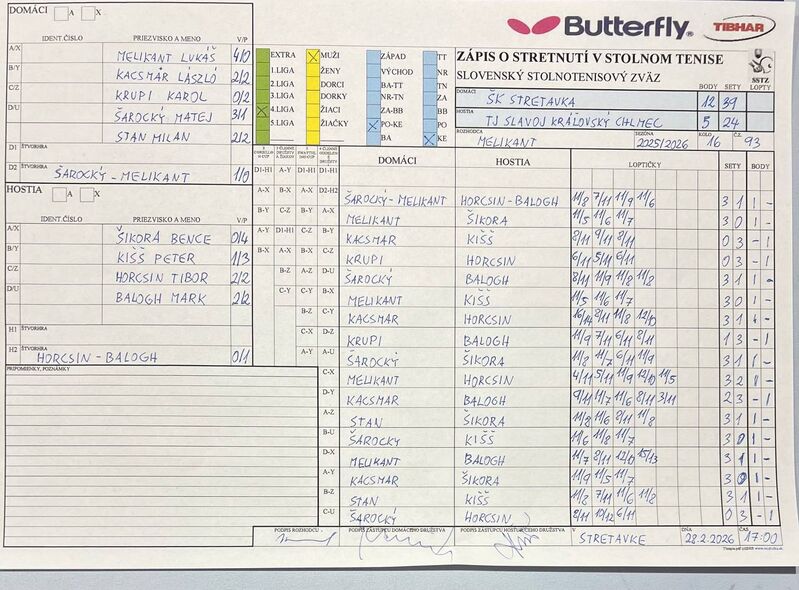 DOMÁCI A X
Butterfly® TIBHAR
IDENT.ČÍSLO PRIEZVISKO A MENO V/P
A/X MELIKANT LUKÁŠ 4/0
B/Y KACSMÁR LÁSZLÓ 2/2
C/Z KRUPI KAROL 0/2
D/U ŠAROCKÝ MATEJ 3/1
STAN MILAN 2/2
D1 ŠTVORHRA
D2 ŠTVORHRA ŠAROCKÝ - MELIKANT 1/0
EXTRA X MUŽI ZÁPAD TT
1.LIGA ŽENY VÝCHOD NR
2.LIGA DORCI BA-TT TN
3.LIGA DORKY NR-TN ZA
X 4.LIGA ŽIACI ZA-BB BB
5.LIGA ŽIAČKY X PO-KE PO
BA X KE
ZÁPIS O STRETNUTÍ V STOLNOM TENISE
SLOVENSKÝ STOLNOTENISOVÝ ZVÄZ
SSTZ
BODY SETY LOPTY
DOMÁCI ŠK STRETAVKA 12 39
HOSTIA TJ SLAVOJ KRÁĽOVSKÝ CHLMEC 5 24
ROZHODCA MELIKANT SEZÓNA 2025/2026 KOLO 16 Č.Z. 93
HOSTIA A X
IDENT.ČÍSLO PRIEZVISKO A MENO V/P
A/X ŠIKORA BENCE 0/4
B/Y KIŠŠ PETER 1/3
C/Z HORCSIN TIBOR 2/2
D/U BALOGH MARK 2/2
H1 ŠTVORHRA
H2 ŠTVORHRA HORCSIN - BALOGH 0/1
PRIPOMIENKY, POZNÁMKY
DOMÁCI HOSTIA LOPTIČKY SETY BODY
D1-H1 A-Y D1-H1 D1-H1
A-X B-X A-X D2-H2 ŠAROCKÝ - MELIKANT HORCSIN - BALOGH 11/8 7/11 11/9 11/6 3 1 1 -
B-Y C-Z B-Y A-X MELIKANT ŠIKORA 11/5 11/6 11/7 3 0 1 -
A-Y D1-H1 C-Z B-Y KACSMAR KIŠŠ 8/11 9/11 8/11 0 3 - 1
B-X A-X B-X C-Z KRUPI HORCSIN 6/11 5/11 6/11 0 3 - 1
B-Z A-Z D-U ŠAROCKÝ BALOGH 8/11 11/9 11/8 11/8 3 1 1 -
C-Y C-Y B-X MELIKANT KIŠŠ 11/5 11/6 11/7 3 0 1 -
B-Z C-Y KACSMAR HORCSIN 16/14 8/11 11/8 12/10 3 1 1 -
C-X D-Z KRUPI BALOGH 11/9 7/11 6/11 8/11 1 3 - 1
A-Y A-U ŠAROCKÝ ŠIKORA 11/8 11/7 6/11 11/9 3 1 1 -
C-X MELIKANT HORCSIN 4/11 5/11 11/9 12/10 11/5 3 2 1 -
D-Y KACSMAR BALOGH 9/11 11/7 11/6 8/11 3/11 2 3 - 1
A-Z STAN ŠIKORA 11/8 11/6 8/11 11/8 3 1 1 -
B-U ŠAROCKÝ KIŠŠ 11/6 11/8 11/7 3 0 1 -
D-X MELIKANT BALOGH 11/7 8/11 12/10 15/13 3 1 1 -
A-Y KACSMAR ŠIKORA 11/9 11/5 11/7 3 0 1 -
B-Z STAN KIŠŠ 11/8 7/11 11/6 11/8 3 1 1 -
C-U ŠAROCKÝ HORCSIN 8/11 10/12 6/11 0 3 - 1
PODPIS ROZHODCU PODPIS ZÁSTUPCU DOMÁCEHO DRUŽSTVA PODPIS ZÁSTUPCU HOSŤUJÚCEHO DRUŽSTVA V STRETAVKE DŇA 28.2.2026 ČAS 17:00